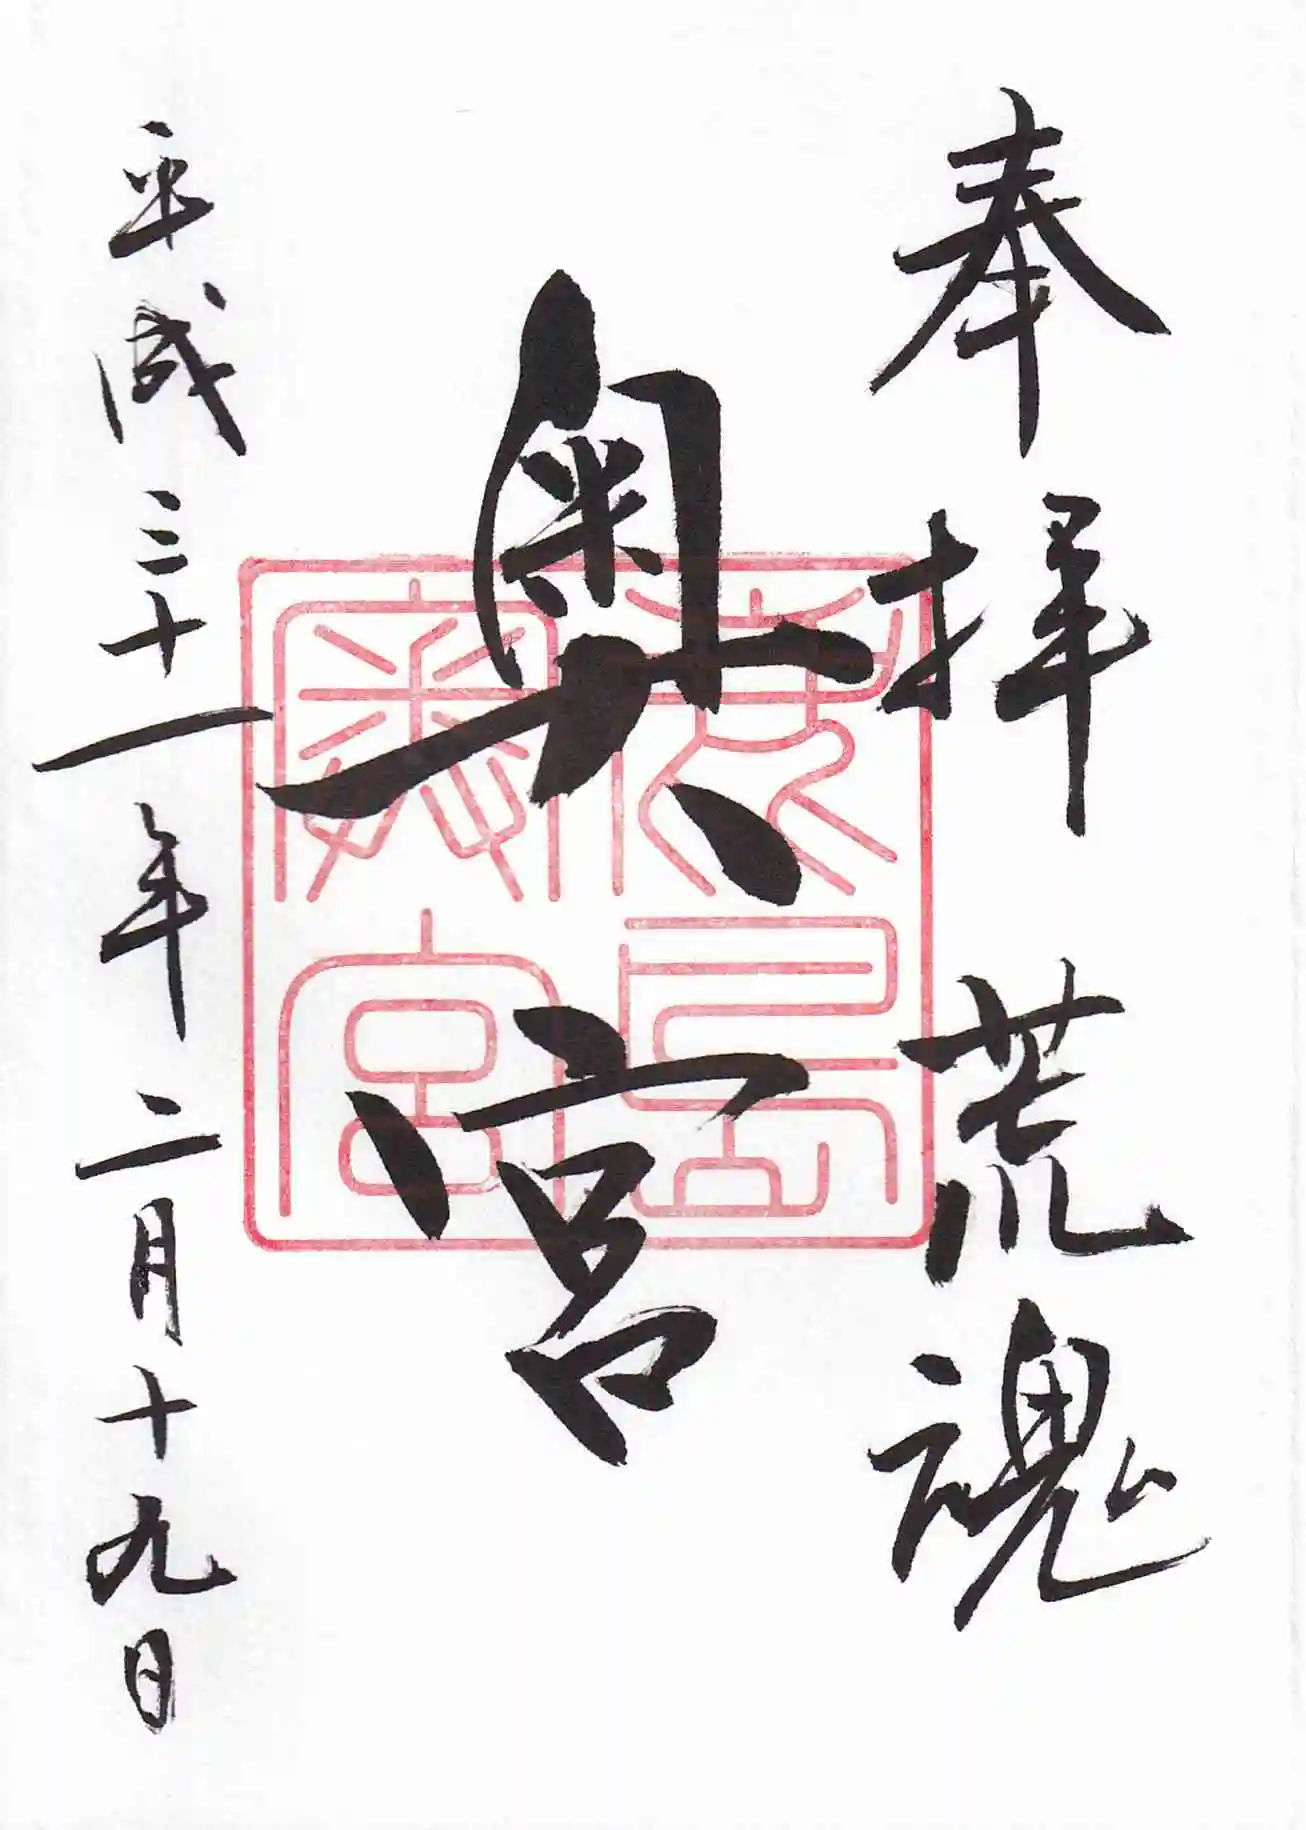 奉拝 荒魂
奥宮
平成三十一年二月十九日
鹿島
奥宮